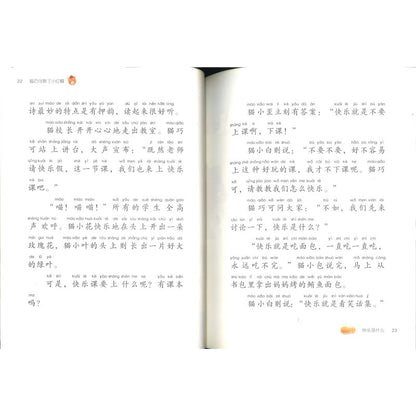 22 猫巧可救了小红帽
诗最妙的特点是有押韵，读起来很好听。
猫校长开开心心地走出教室。猫巧
可站上讲台，大声宣布：“既然老师
请快乐假，这一节课，我们也来上快乐
课吧。”
“喵！喵喵！”所有的学生全高
声欢呼。猫小花快乐地在头上开出一朵
玫瑰花，猫小叶的头上则长出一片好大
的绿叶。
可是，快乐课要上什么呢？有课本
吗？
猫小歪立刻有答案：“快乐就是不要
上课啊，下课！”
猫小白则说：“不要不要，好不容易
上这种好玩的课，我才不下课呢。猫巧
可，请教教我们怎么快乐。”
猫巧可问大家：“不如，我们先来
讨论一下，快乐是什么？”
“快乐就是吃面包，一直吃一直吃，
永远吃不完。”猫小包说完，马上从
书包里拿出妈妈烤的鲔鱼面包。
猫小白则说：“快乐就是看笑话集。”
快乐是什么 23